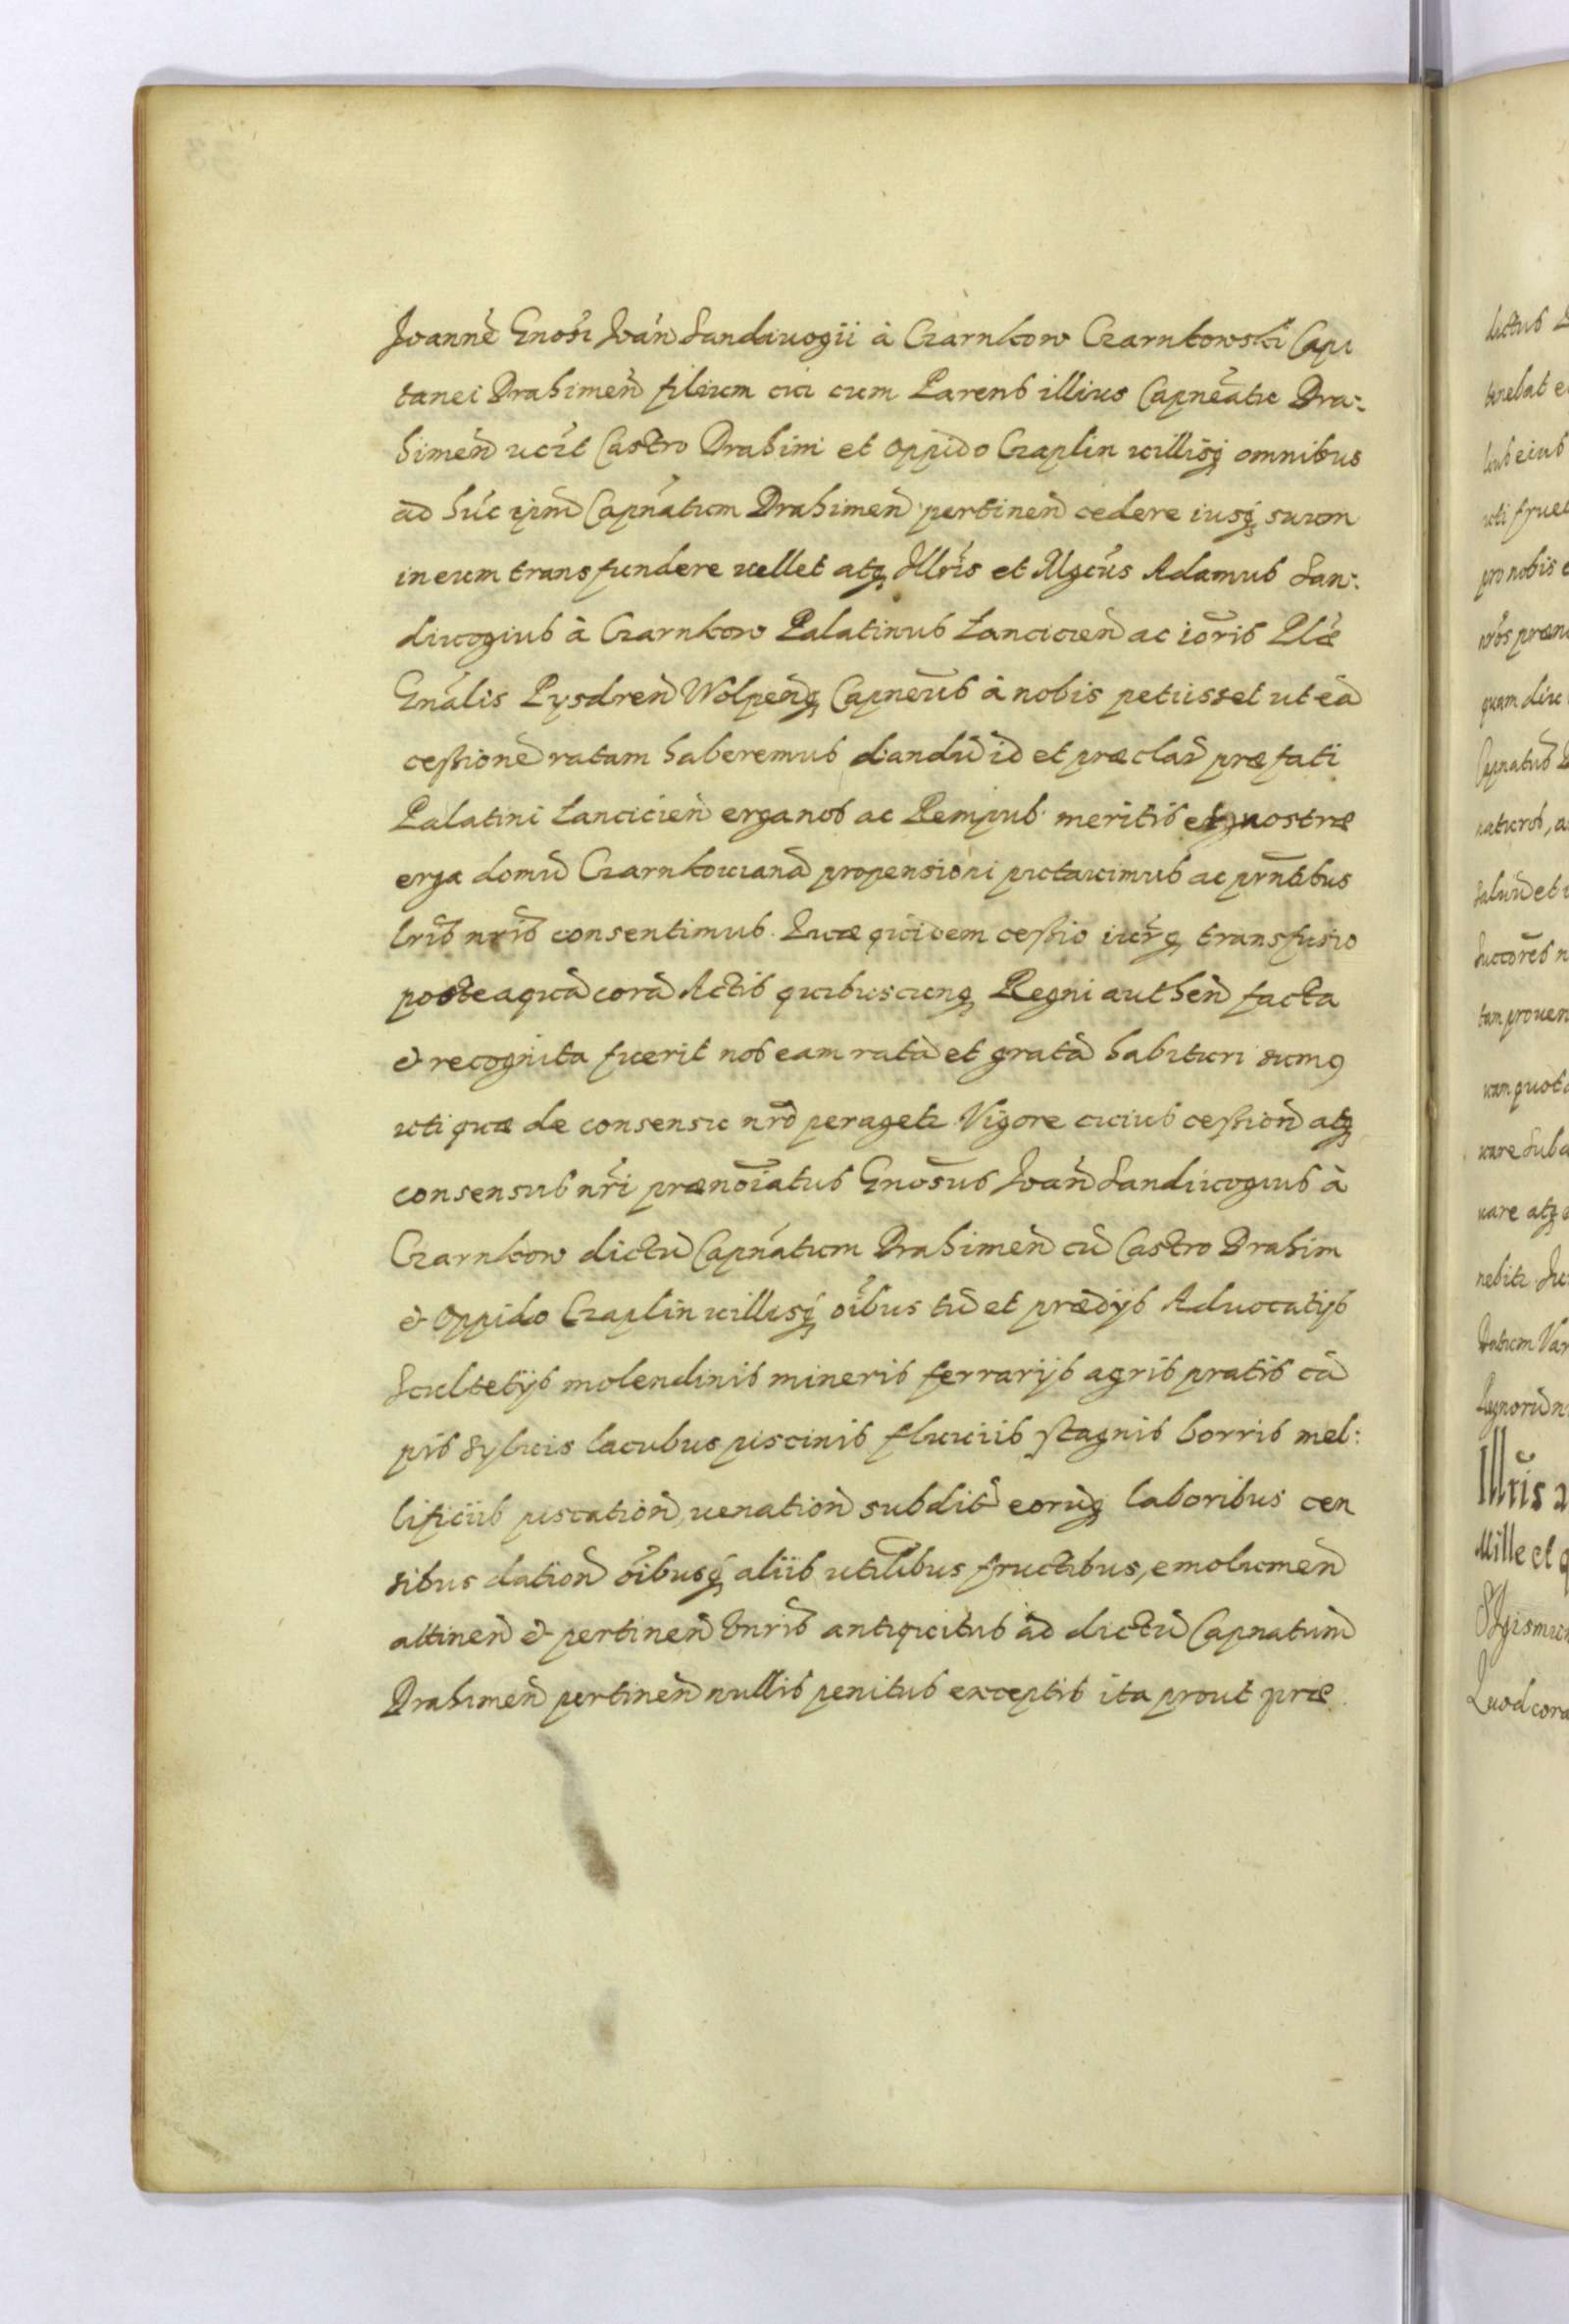 Joannē Gnosi Joan Sandiuogii à Czarnkow Czarnkowski Capi
tanei Drahimen̄ filium cui cum Parens illius Capneatu Dra:
himen̄ uczt Castro Drahim et oppido Czaplin uillisq̨ omnibus
ad húc ipm̄ Capnatum Drahimen̄ pertinen̄ cedere iusq̨ suum
in eum transfundere uellet atq̨ Illris et Mgcus Adamus San:
diuogius à Czarnkow Palatinus Lancicien̄ ac ioris Plæ
Gnalis Pysdren̄ Wolpenq̨ Capneus à nobis petiisset ut eā
cessionē ratam haberemus dandū id et præclaȓ præfati
Palatini Lancicien̄ erga nos ac Rempub. meritis et nostræ
erga domū Czarnkouianā propensioni putauimus ac prn̄tibus
lris nris consentimus. Quæ quidem cessio iurq̨ transfusio
posteaquā corā Actis quibuscunq̨ Regni authen̄ facta
& recognita fuerit nos eam ratā et gratā habituri sumꝰ
uti quæ de consensu nrō peragetr. Vigore cuius cession̄ atq̨
consensus nr̄i prænoīatus Gnosus Joan̄ Sandiuogius à
Czarnkow dictū Capnatum Drahimen̄ cū Castro Drahim
& oppido Czaplin uillisq̨ oībus tū et prædijs Aduocatijs
Scultetijs molendinis mineris ferrarijs agris pratis cā
pis syluis lacubus piscinis fluuiis stagnis borris mel:
lificiis piscation̄, uenation̄ subdit̄ eorūq̨ laboribus cen
sibus dation̄ oībusq̨ aliis utilibus fructibus, emolumen̄
attinen̄ & pertinen̄ antiquitus ad dictū Capnatum
Drahimen̄ pertinen̄ nullis penitus exceptis ita prout præ